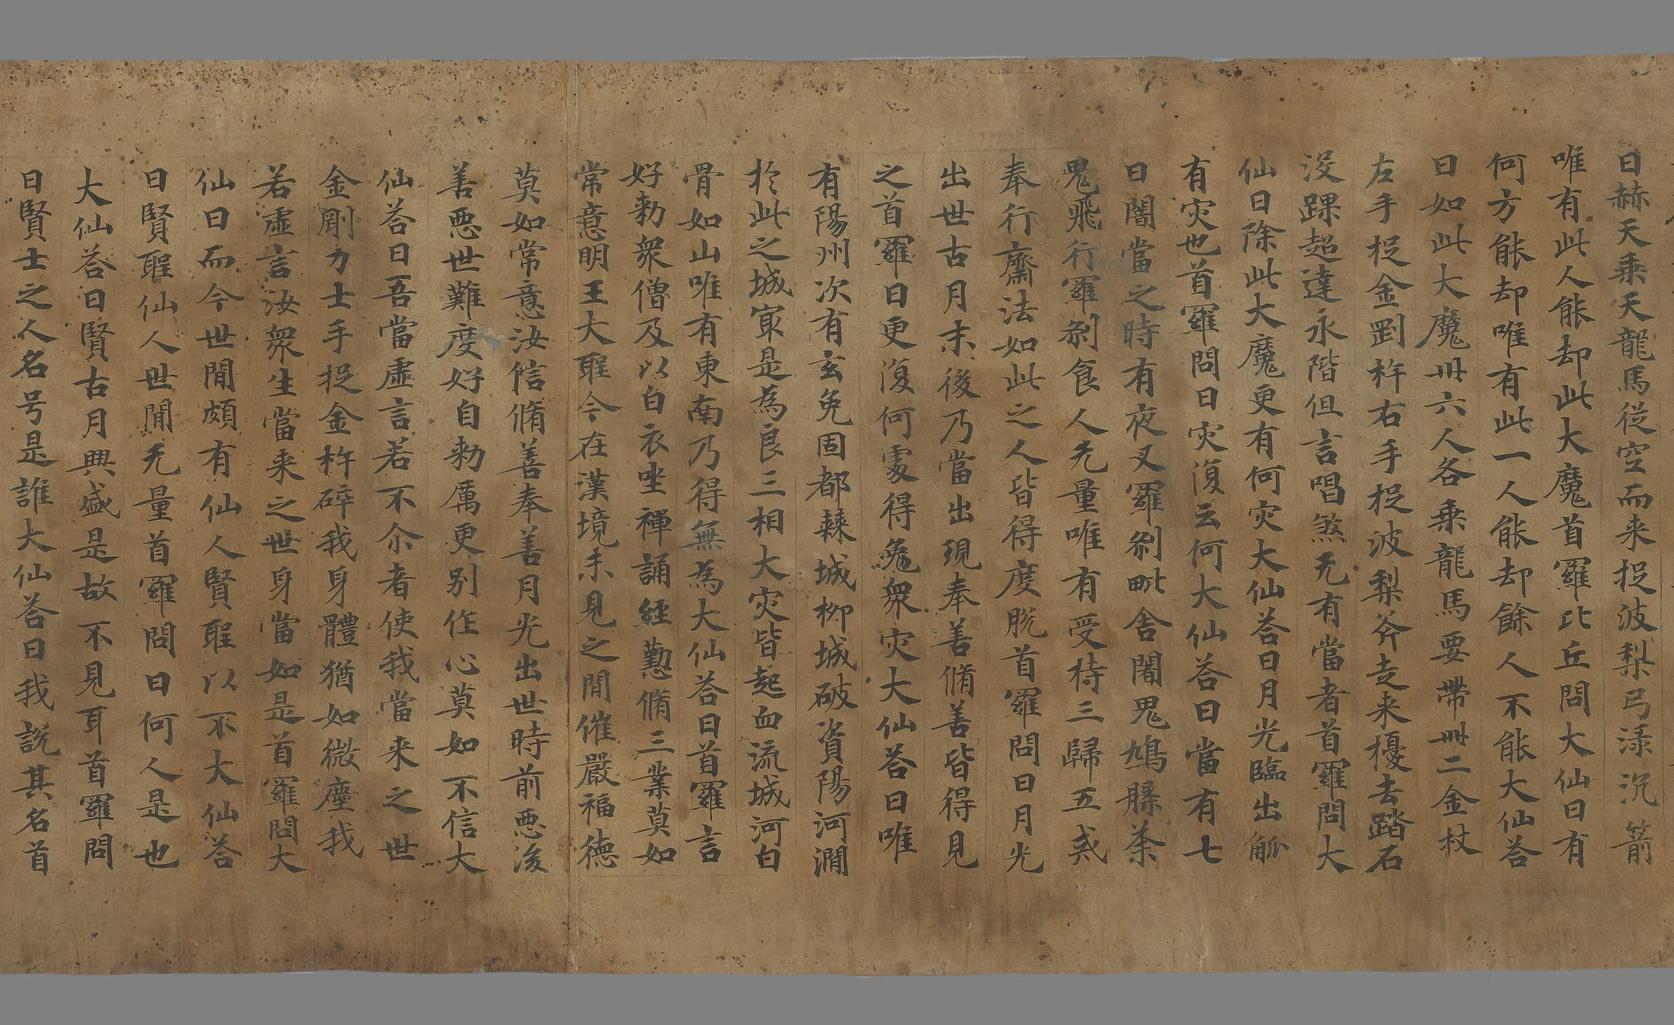 曰赫天乘天龍馬從空而来捉波梨弓渌沉箭
唯有此人能却此大魔首羅比丘問大仙曰有
何方能却唯有此一人能却餘人不能大仙答
曰如此大魔卅六人各乘龍馬要帶卌二金杖
左手捉金剛杵右手捉波梨斧走来櫌去踏石
沒踝超達永階但言唱煞无有當者首羅問大
仙曰除此大魔更有何灾大仙答曰月光臨出
有灾也首羅問曰灾復云何大仙答曰當有七
日闇當之時有夜叉羅刹毗舍闍鬼鳩槃荼
鬼飛行羅刹食人无量唯有受持三歸五戒
奉行齋法如此之人皆得度脱首羅問曰月光
出世古月末後乃當出現奉善脩善皆得見
之首羅曰更復何處得兔衆灾大仙答曰唯
有陽州次有玄兔固都棘城柳城破資陽河澗
於此之城冣是為良三相大灾皆起血流城河白
骨如山唯有東南乃得無為大仙答曰首羅言
好勑衆僧及以白衣坐禪誦經懃脩三業莫如
常意明王大聖今在漢境未見之間催嚴福徳
莫如常意汝信脩善奉善月光出世時前惡後
善惡世難度好自勑厲更别作心莫如不信大
仙答曰吾當虚言若不尒者使我當来之世
金剛力士手捉金杵碎我身體猶如微塵我
若虚言汝衆生當来之世身當如是首羅問大
仙曰而今世間頗有仙人賢聖以不大仙答
曰賢聖仙人世間无量首羅問曰何人是也
大仙答曰賢古月興盛是故不見耳首羅問
曰賢士之人名号是誰大仙答曰我説其名首